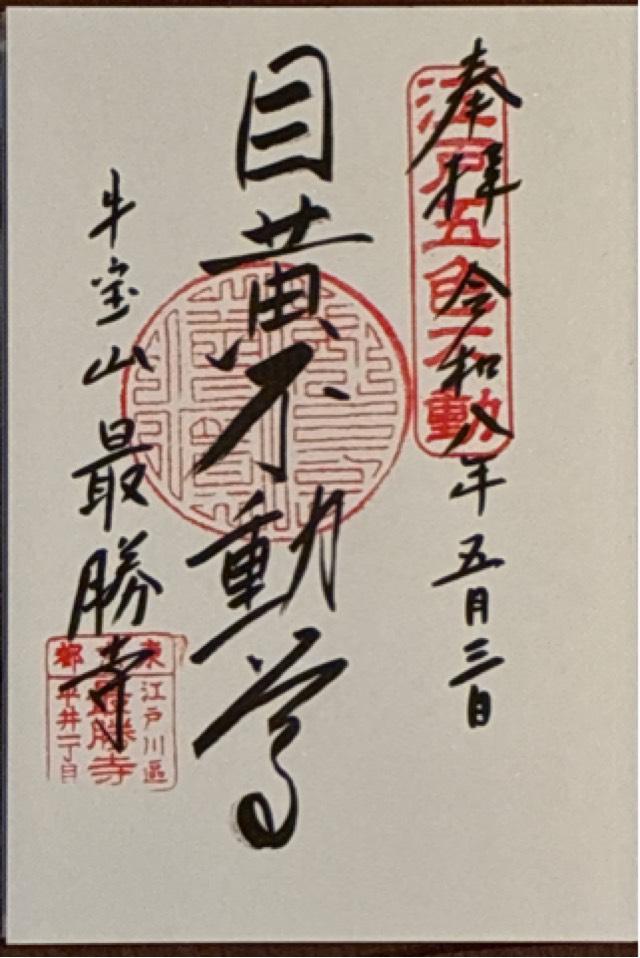 奉拝 令和八年五月三日
江戸五色不動
目黄不動尊
牛宝山最勝寺
東京都
江戸川區
最勝寺
平井一丁目